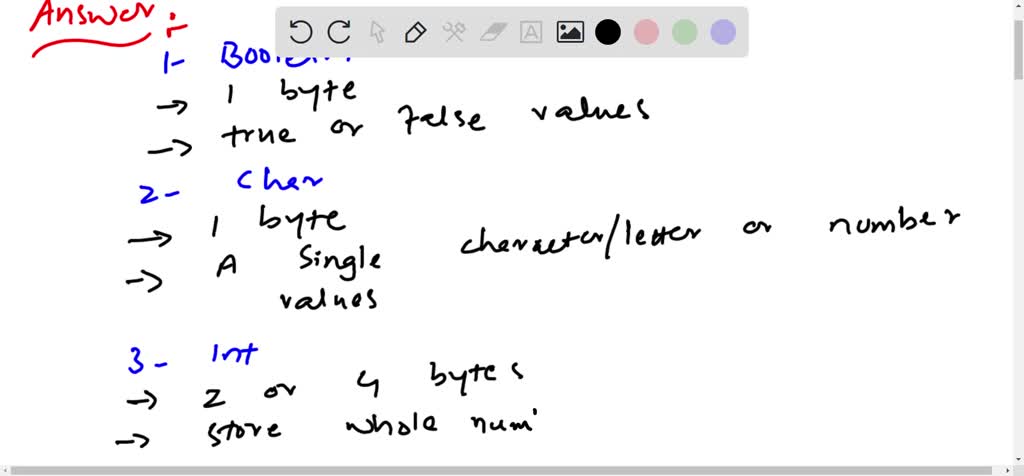 Answer :-
1- Boolean
→ 1 byte
→ true or False values
2- Char
→ 1 byte
→ A single character/letter or number values
3- Int
→ 2 or 4 bytes
→ store whole num